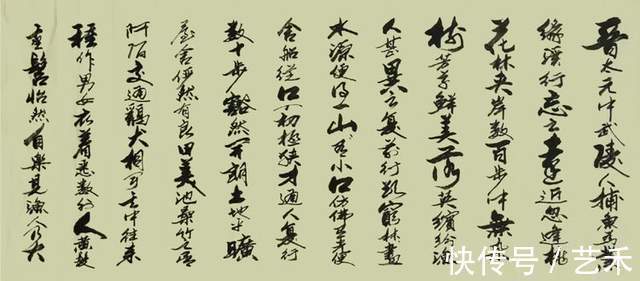 晉太元中武陵人捕魚為業
緣溪行忘之遠近忽逢桃
花林夾岸數百步中無雜
樹芳草鮮美落英繽紛漁
人甚異之復前行欲窮林盡
水源便得一山有小口仿佛若光便
舍船從口入初極狹才通人復行
數十步豁然開朗土地平曠
屋舍儼然有良田美池桑竹之屬
阡陌交通鷄犬相聞其中往來
種作男女衣著悉如外人黃髮
垂髫怡然自樂見漁人乃大
快传号／艺禾